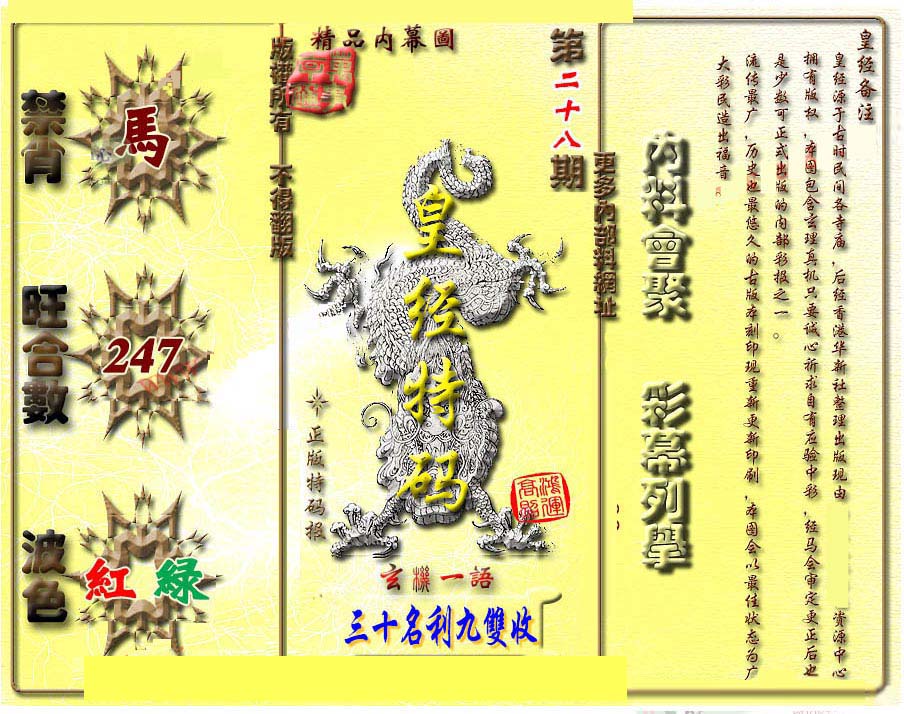 精品内幕圖
第二十八期
版權所有 不得翻版
更多内部料網址
禁肖
馬
旺合數
247
波色
紅 綠
皇经特码
正版特码报
鴻運高照
玄機一語
三十名利九雙收
内料會聚 彩幕列舉
皇经备注
皇经源于古时民间各寺庙,后经香港华新社整理出版现由 资源中心
拥有版权,本图包含玄理真机只要诚心祈求自有应验中彩,经马会审定更正后也
是少数可正式出版的内部彩报之一。
流传最广,历史也最悠久的古版本刻印现重新更新印刷,本图会以最佳状态为广
大彩民造出福音